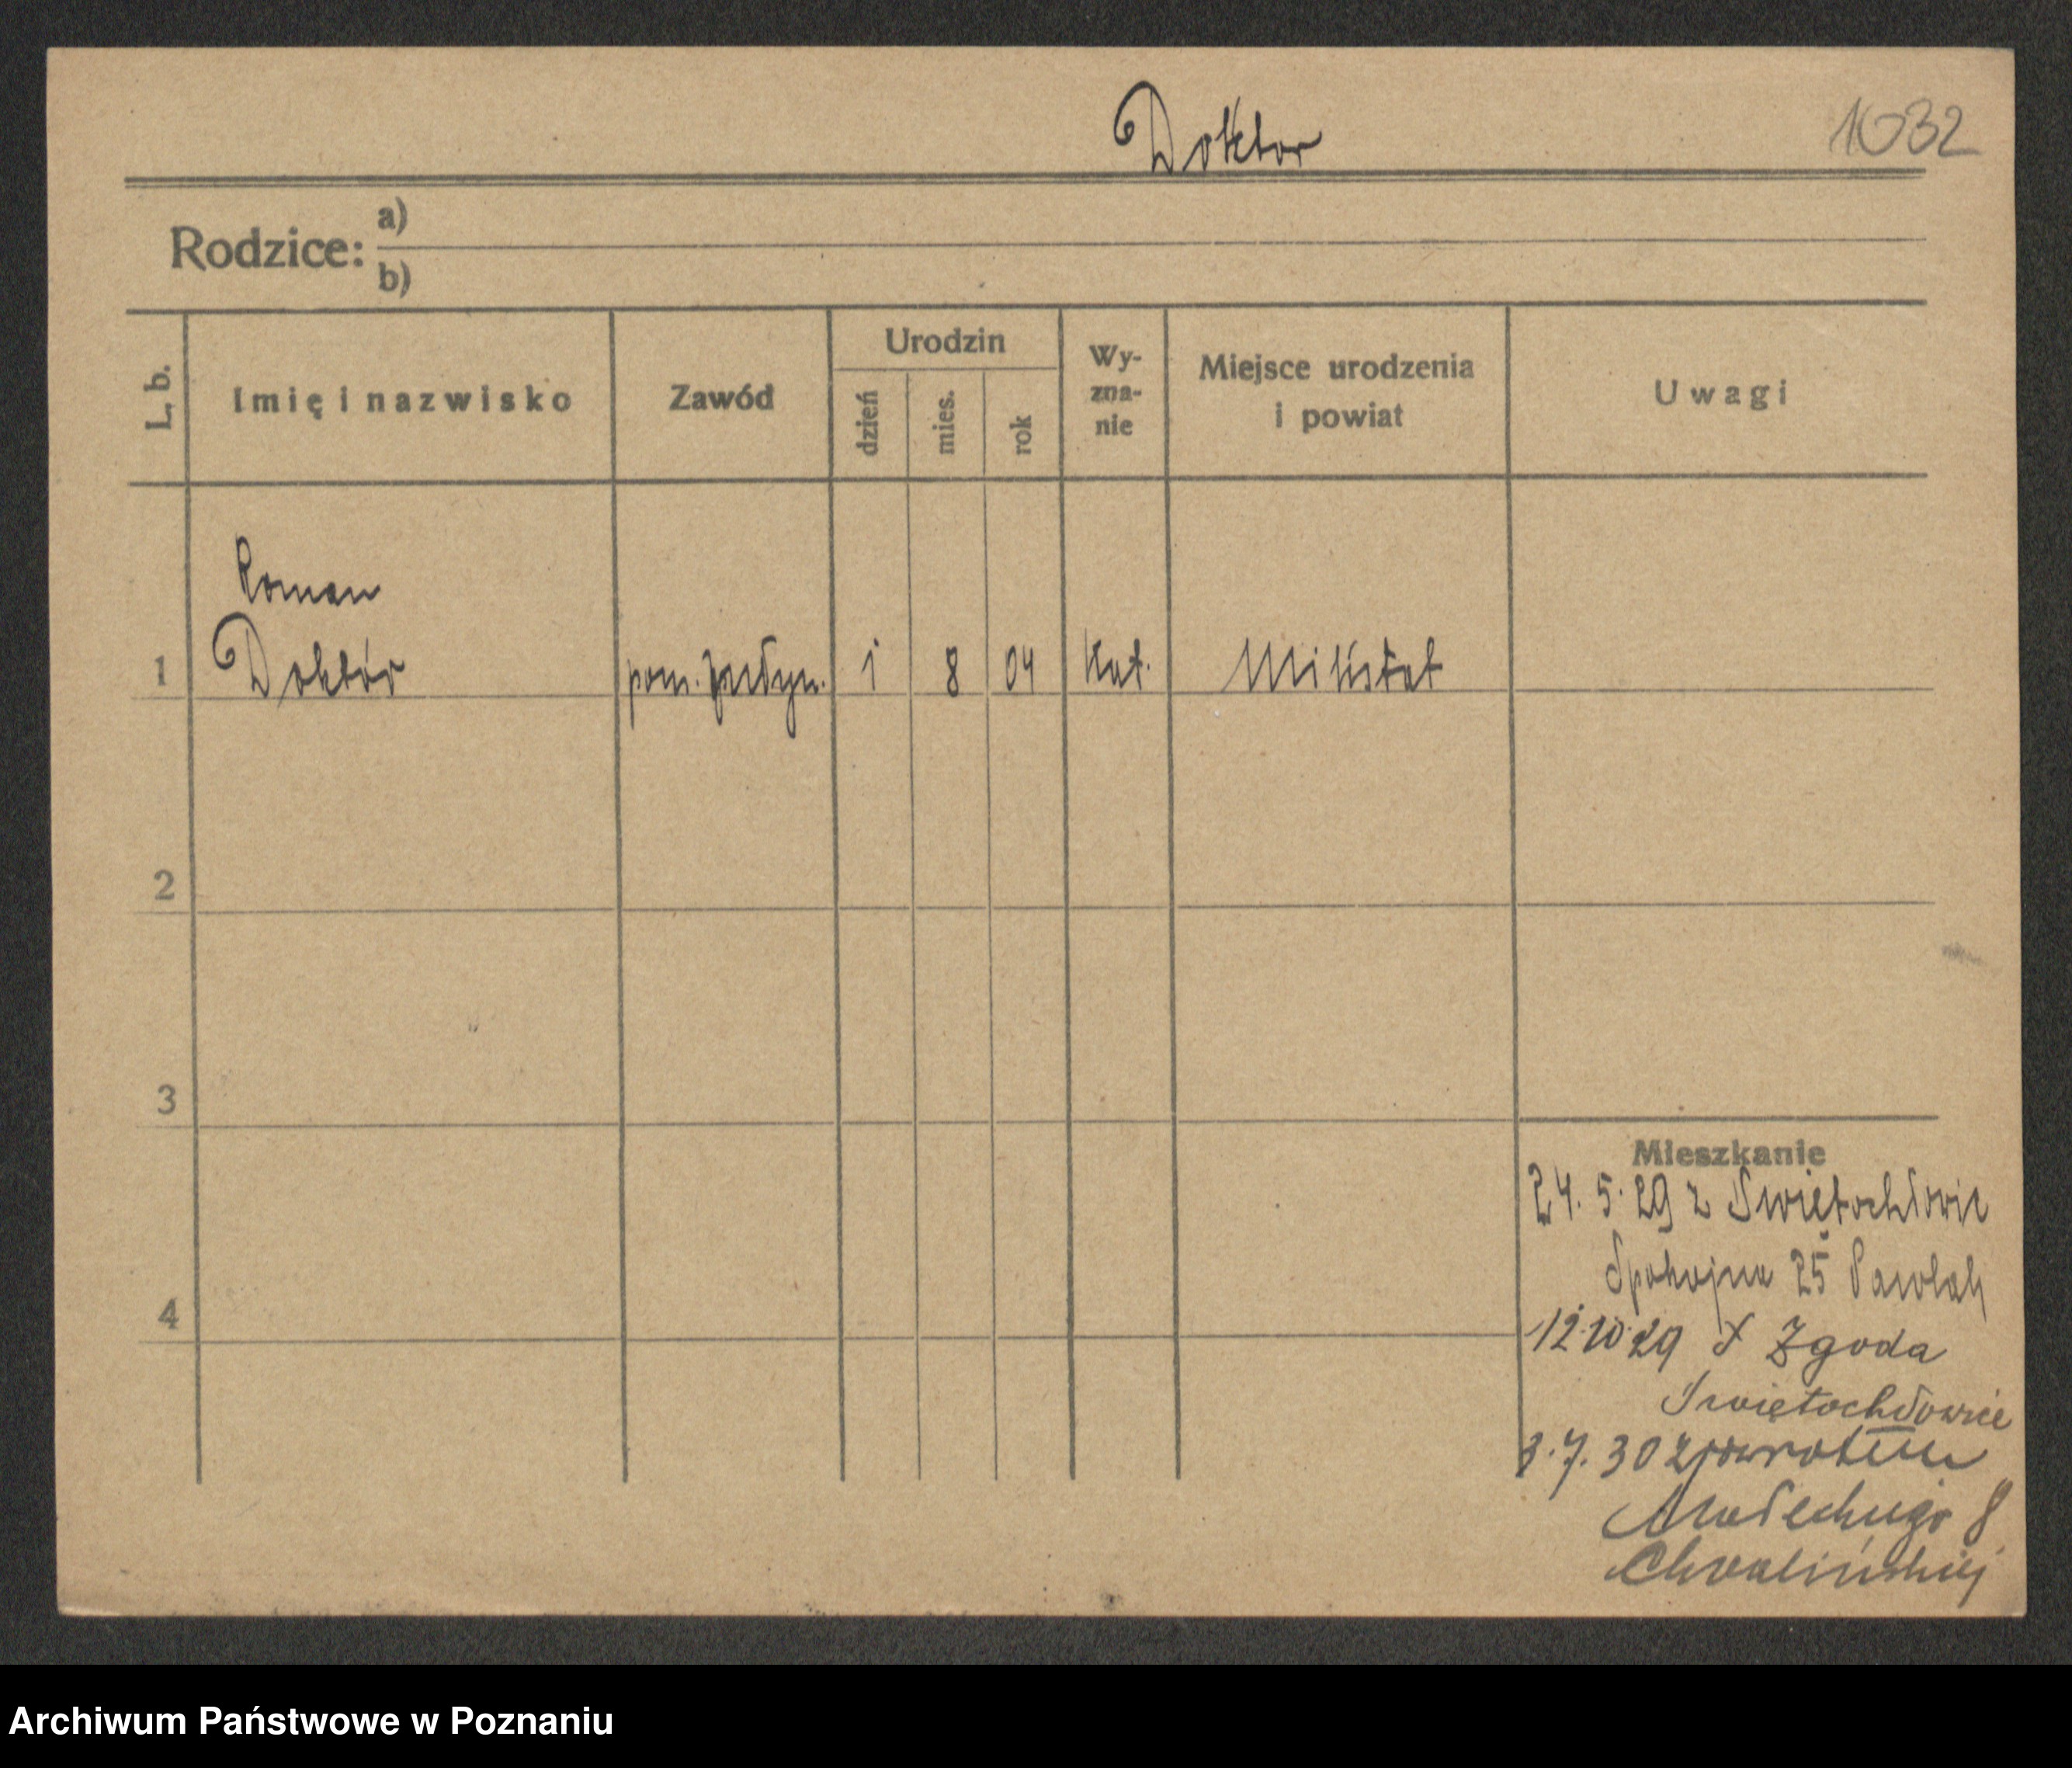 Doktor
1032
Rodzice: a)
b)
L. b.
Imię i nazwisko
Zawód
Urodzin
dzień
mies.
rok
Wy-
zna-
nie
Miejsce urodzenia
i powiat
Uwagi
Roman
1 Doktór pom. 1 8 04 Kat. Mikstat
2
3
4
Mieszkanie
24. 5. 29 z Świętochłowic
Spokojna 25 Pawlak
12.10.29 Zgoda
Świętochłowice
3.7.30 z powrotem
Małeckiego 8
Chwalińskiej
Archiwum Państwowe w Poznaniu